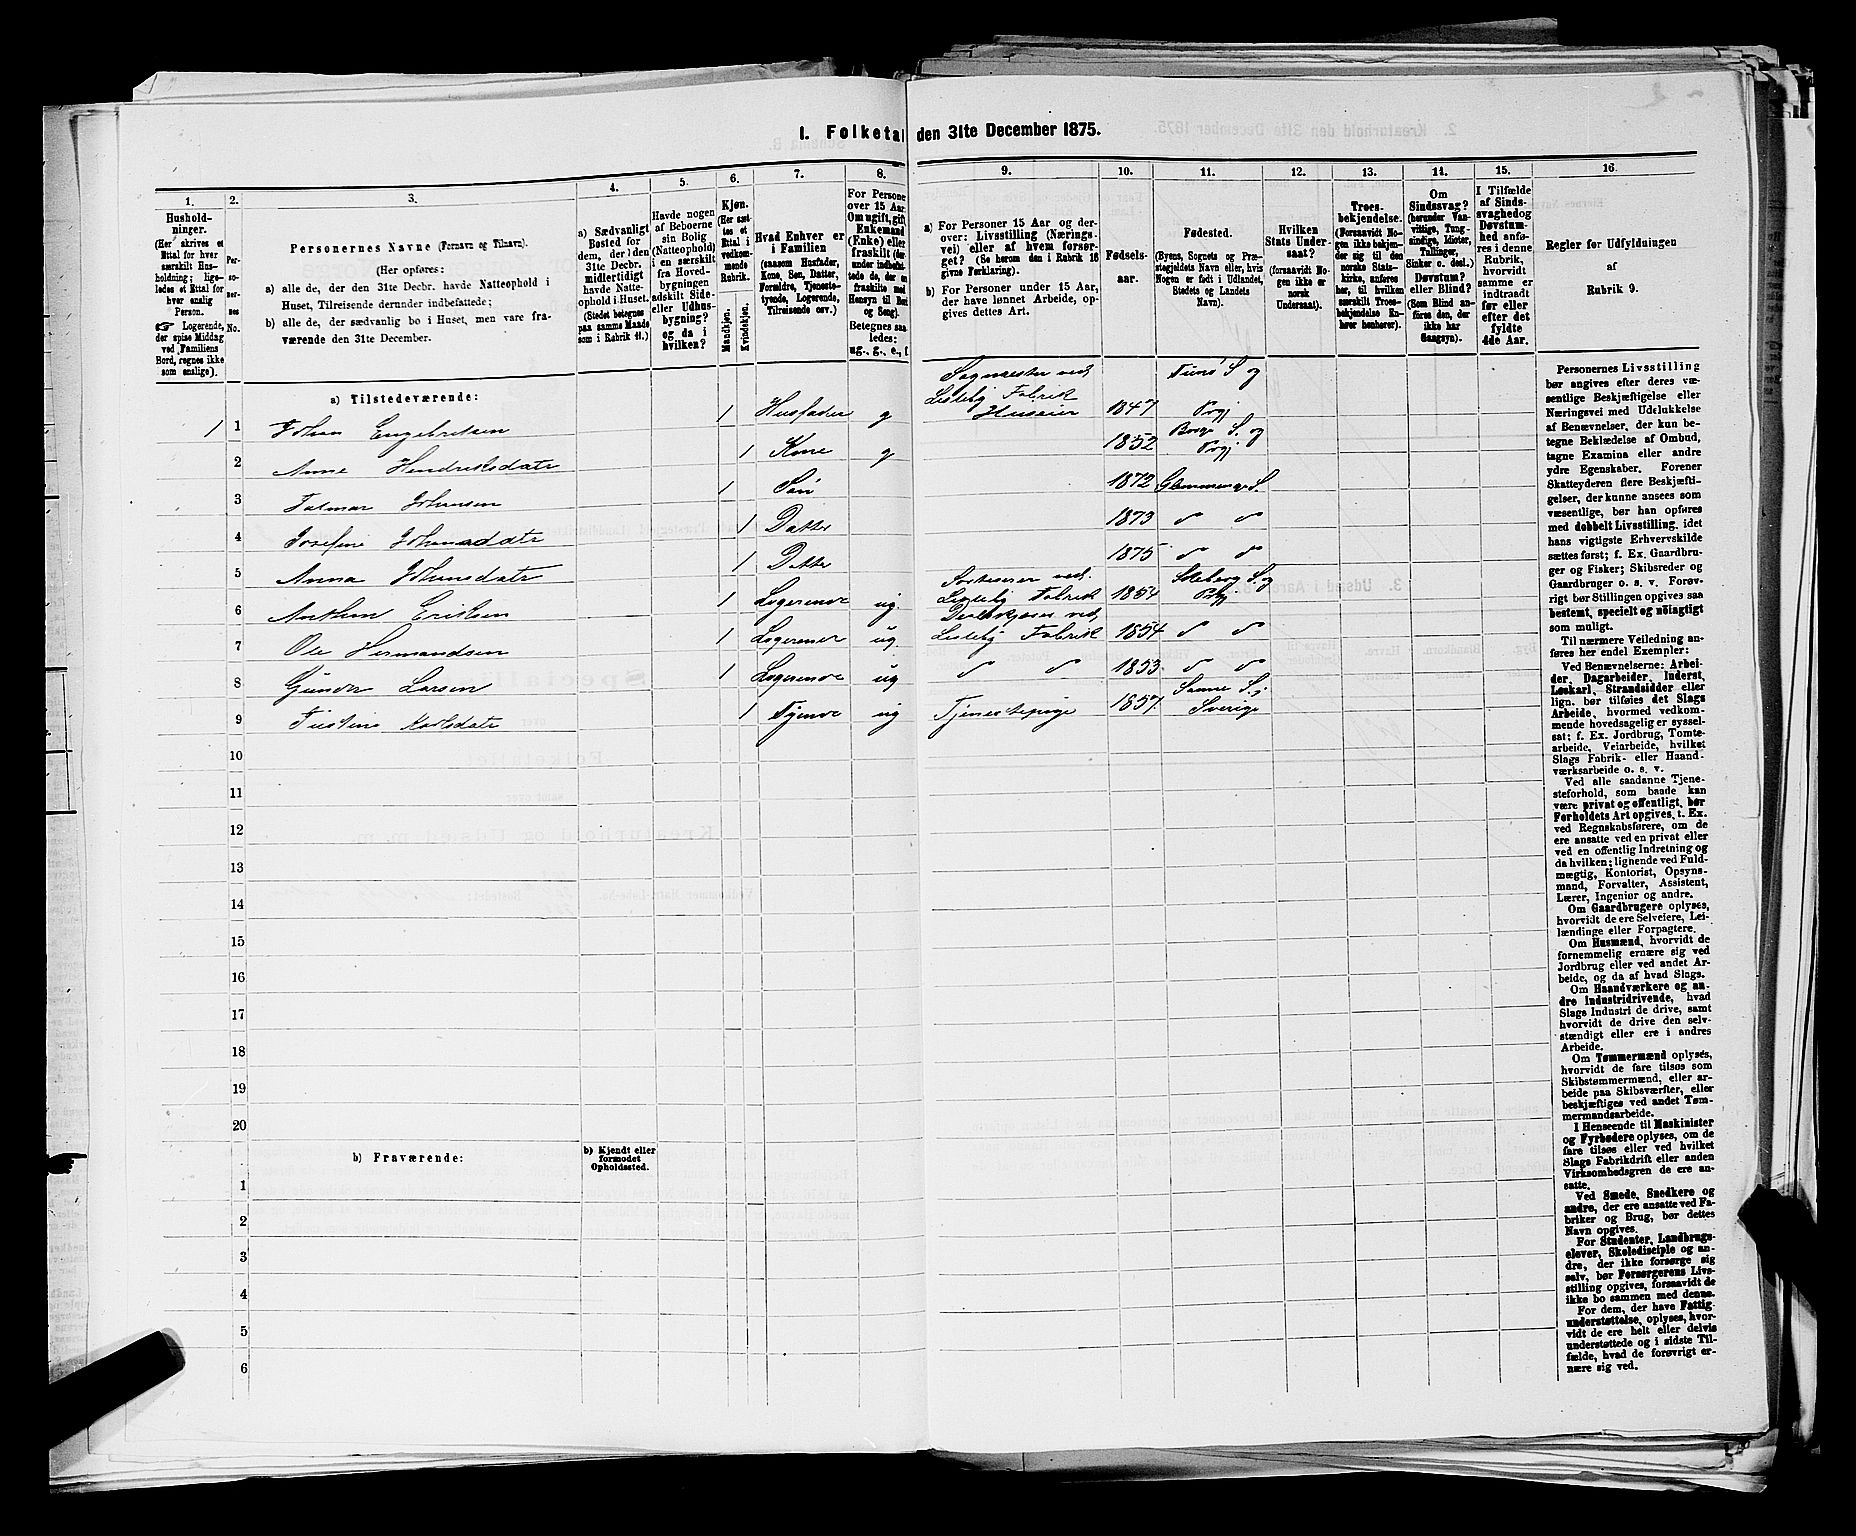 1. Folketal den 31te December 1875.
1.
Hushold-
ninger.
(Her skrives et
Ettal for hver
særskilt Hus-
holdning; lige-
ledes et Ettal for
hver enslig
Person.
☞ Logerende,
der spise Middag
ved Familiens
Bord, regnes ikke
som enslige).
2.
Per-
so-
ner-
nes
No.
3.
Personernes Navne (Fornavn og Tilnavn).
(Her opføres:
a) alle de, der den 31te Decbr. havde Natteophold i
Huset, Tilreisende derunder indbefattede;
b) alle de, der sædvanlig bo i Huset, men vare fra-
værende den 31te December).
4.
a) Sædvanligt
Bosted for
dem, der i den
31te Decbr.
midlertidigt
havde Natte-
ophold i Huset.
(Stedet betegnes
paa samme Maade
som i Rubrik 11.)
5.
Havde nogen
af Beboerne
sin Bolig
(Natteophold)
i en særskilt
fra Hoved-
bygningen
adskilt Side-
eller Udhus-
bygning?
og da i
hvilken?
6.
Kjøn.
(Her sæt-
tes et
Ettal i
vedkom-
mende
Rubrik.
Mandkjøn.
Kvindekjøn.
7.
Hvad Enhver er
i Familien
(saasom Husfader,
Kone, Søn, Datter,
Forældre, Tjeneste-
tyende, Logerende,
Tilreisende osv.)
8.
For Persone
over 15 Aar
Om ugift, gift
Enkemand
(Enke) eller
fraskilt (her-
under indbefat-
tede de, der er
fraskilte med
Hensyn til Bord
og Seng).
Betegnes saa-
ledes:
ug., g., e., f
9.
a) For Personer 15 Aar og der-
over: Livsstilling (Nærings-
vei) eller af hvem forsør-
get? (Se herom den i Rubrik 16
givne Forklaring).
b) For Personer under 15 Aar,
der have lønnet Arbeide, op-
gives dettes Art.
10.
Fødsels-
aar.
11.
Fødested.
(Byens, Sognets og Præ-
stegjeldets Navn eller, hvis
Nogen er født i Udlandet,
Stedets og Landets
Navn).
12.
Hvilken
Stats Under-
saat?
(forsaavidt No-
gen ikke er
norsk
Undersaat).
13.
Troes-
bekjendelse.
(Forsaavidt No-
gen ikke bekjen-
der sig til den
norske Stats-
kirke, anføres
her, til hvilken
særskilt Troes-
bekjendelse En-
hver henhører).
14.
Om
Sindssvag?
(herunder Van-
vittige, Tung-
sindige, Idioter,
Tullinger,
Sinker o. desl.)
Døvstum?
eller Blind?
(Som Blind an-
føres den, der
ikke har
Gangsyn).
15.
I Tilfælde
af Sinds-
svaghed og
Døvstum-
hed anfø-
res i denne
Rubrik,
hvorvidt
samme er
indtraadt
før eller
efter det
fyldte
4de Aar.
16.
Regler for Udfyldningen
af
Rubrik 9.
a) Tilstedeværende:
Sagmester ved Tunø S og
Lisleby Fabrik
1 1 Johan Engebretsen 1 Husfader g Huseier 1847 Prgj
Borge S. og
2 Anne Hendriksdatr 1 Kone g 1852 Prgj
3 Talmar Johansen 1 Søn 1872 Glemminge S.
4 Josefine Johansdatr 1 Datter 1873 " "
5 Anna Johansdatr 1 Datter 1875 " "
6 Anthon Eriksen 1 Logerende ug. Lisleby Fabrik 1854 Prgj
7 Ole Hermandsen 1 Logerende ug. Lisleby Fabrik 1854 " "
8 Gunder Larsen 1 Logerende ug " " 1853 " "
9 Karlsdatr 1 Tyende ug Tjenestepige 1857 Sverige
10
11
12
13
14
15
16
17
18
19
20
b) Fraværende:
b) Kjendt eller
formodet
Opholdssted.
1
2
3
4
5
6
Personernes Livsstilling
bør angives efter deres væ-
sentlige Beskjæftigelse eller
Næringsvei med Udelukkelse
af Benævnelser, der kun be-
tegne Beklædelse af Ombud,
tagne Examina eller andre
ydre Egenskaber. Forener
Skatteyderen flere Beskjæfti-
gelser, der kunne ansees som
væsentlige, bør han opføres
med dobbelt Livsstilling, idet
hans vigtigste Erhvervskilde
sættes først; f. Ex. Gaardbru-
ger og Fisker; Skibsreder og
Gaardbruger o. s. v. Forøv-
rigt bør Stillingen opgives saa
bestemt, specielt og nøiagtigt
som muligt.
Til nærmere Veiledning an-
føres her endel Exempler:
Ved Benævnelserne: Arbei-
der, Dagarbeider, Inderst,
Løskarl, Strandsidder eller
lign. bør tilføies det Slags
Arbeide, hvormed vedkom-
mende hovedsagelig er syssel-
sat; f. Ex. Jordbrug, Tomte-
arbeide, Veiarbeide, hvilket
Slags Fabrik- eller Haand-
værksarbeide o. s. v.
Ved alle saadanne Tjene-
steforhold, som baade kan
være privat og offentligt, bør
Forholdets Art opgives, t. Ex.
ved Regnskabsførere, om de
ere ansatte ved en privat eller
ved en offentlig Indretning og
da hvilken; lignende ved Fuld-
mægtig, Kontorist, Opsyns-
mand, Forvalter, Assistent,
Lærer, Ingeniør og andre.
Om Gaardbrugere oplyses,
hvorvidt de ere Selveiere, Lei-
lændinge eller Forpagtere.
Om Husmænd, hvorvidt de
fornemmelig ernære sig ved
Jordbrug eller ved andet Ar-
beide, og da af hvad Slags.
Om Haandværkere og an-
dre Industridrivende, hvad
Slags Industri de drive, samt
hvorvidt de drive den selv-
stændigt eller ere i andres
Arbeide.
Om Tømmermænd oplyses,
hvorvidt de fare tilsøs som
Skibstømmermænd, eller ar-
beide paa Skibsværfter, eller
beskjæftiges ved andet Tøm-
mermandsarbeide.
I Henseende til Maskinister
og Fyrbødere oplyses, om de
fare tilsøs eller ved hvilket
Slags Fabrikdrift eller anden
Virksomhedsgren de ere an-
satte.
Ved Smede, Snedkere og
andre, der ere ansatte ved Fa-
briker og Brug, bør dettes
Navn opgives.
For Studenter, Landbrugs-
elever, Skoledisciple og an-
dre, der ikke forsørge sig
selv, bør Forsørgerens Livs-
stilling opgives, forsaavidt de
ikke bo sammen med denne.
For dem, der have Fattig-
understøttelse, oplyses, hvor-
vidt de ere helt eller delvis
understøttede og i sidste Til-
fælde, hvad de forøvrigt er-
nære sig ved.